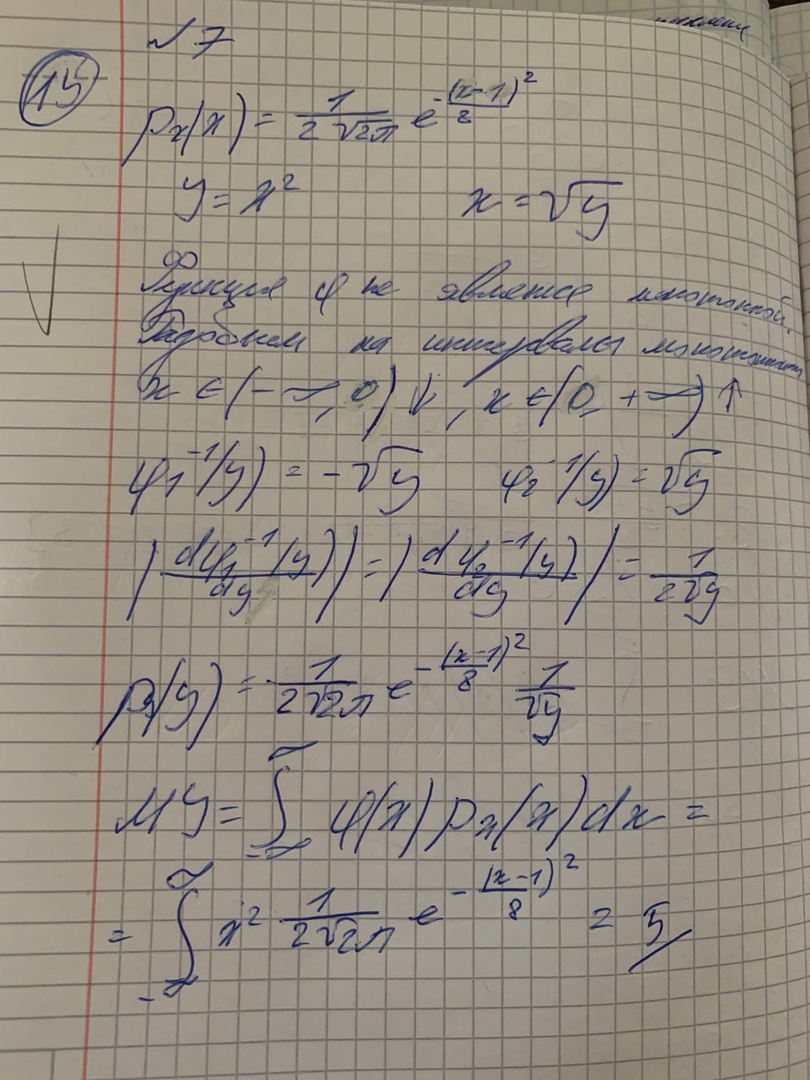 №7
15
p_x(x) = \frac{1}{2\sqrt{2π}} e^{-\frac{(x-1)^2}{8}}
y = x^2    x = √y
Функция φ не является монотонной.
Разобьем на интервалы монотонности
x ∈ (-∞, 0) ↓, x ∈ (0, +∞) ↑
φ_1^{-1}(y) = -√y    φ_2^{-1}(y) = √y
|\frac{dφ_1^{-1}(y)}{dy}| = |\frac{dφ_2^{-1}(y)}{dy}| = \frac{1}{2√y}
p_y(y) = \frac{1}{2\sqrt{2π}} e^{-\frac{(x-1)^2}{8}} \frac{1}{√y}
MY = \int_{-∞}^{∞} φ(x) p_x(x) dx =
= \int_{-∞}^{∞} x^2 \frac{1}{2\sqrt{2π}} e^{-\frac{(x-1)^2}{8}} = 5